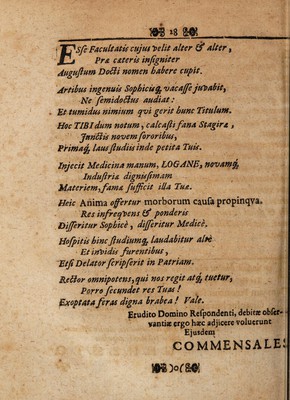 18
ESse Facultatis cujus velit alter & alter,
Præ cæteris insigniter
Augustum Docti nomen habere cupit.
Artibus ingenuis Sophicisq; vacasse juvabit,
Ne semidoctus audiat:
Et tumidus nimium qvi gerit hunc Titulum.
Hoc TIBI dum notum, calcasti fana Stagiræ,
Junctis novem sororibus,
Primaq; laus studiis inde petita Tuis.
Injecit Medicina manum, LOGANE, novamq;
Industriâ dignissimam
Materiem, famæ sufficit illa Tuæ.
Heic Anima offertur morborum causa propinqva,
Res infreqvens & ponderis
Differitur Sophicè, differitur Medicè.
Hospitis hinc studiumq; laudabitur altè
Et invidis furentibus,
Etsi Delator scripserit in Patriam.
Rector omnipotens, qui nos regit atq; tuetur,
Porro secundet res Tuas!
Exoptata feras digna brabea! Vale.
Erudito Domino Respondenti, debitæ obser-
vantiæ ergo hæc adjicere voluerunt
Ejusdem
COMMENSALES